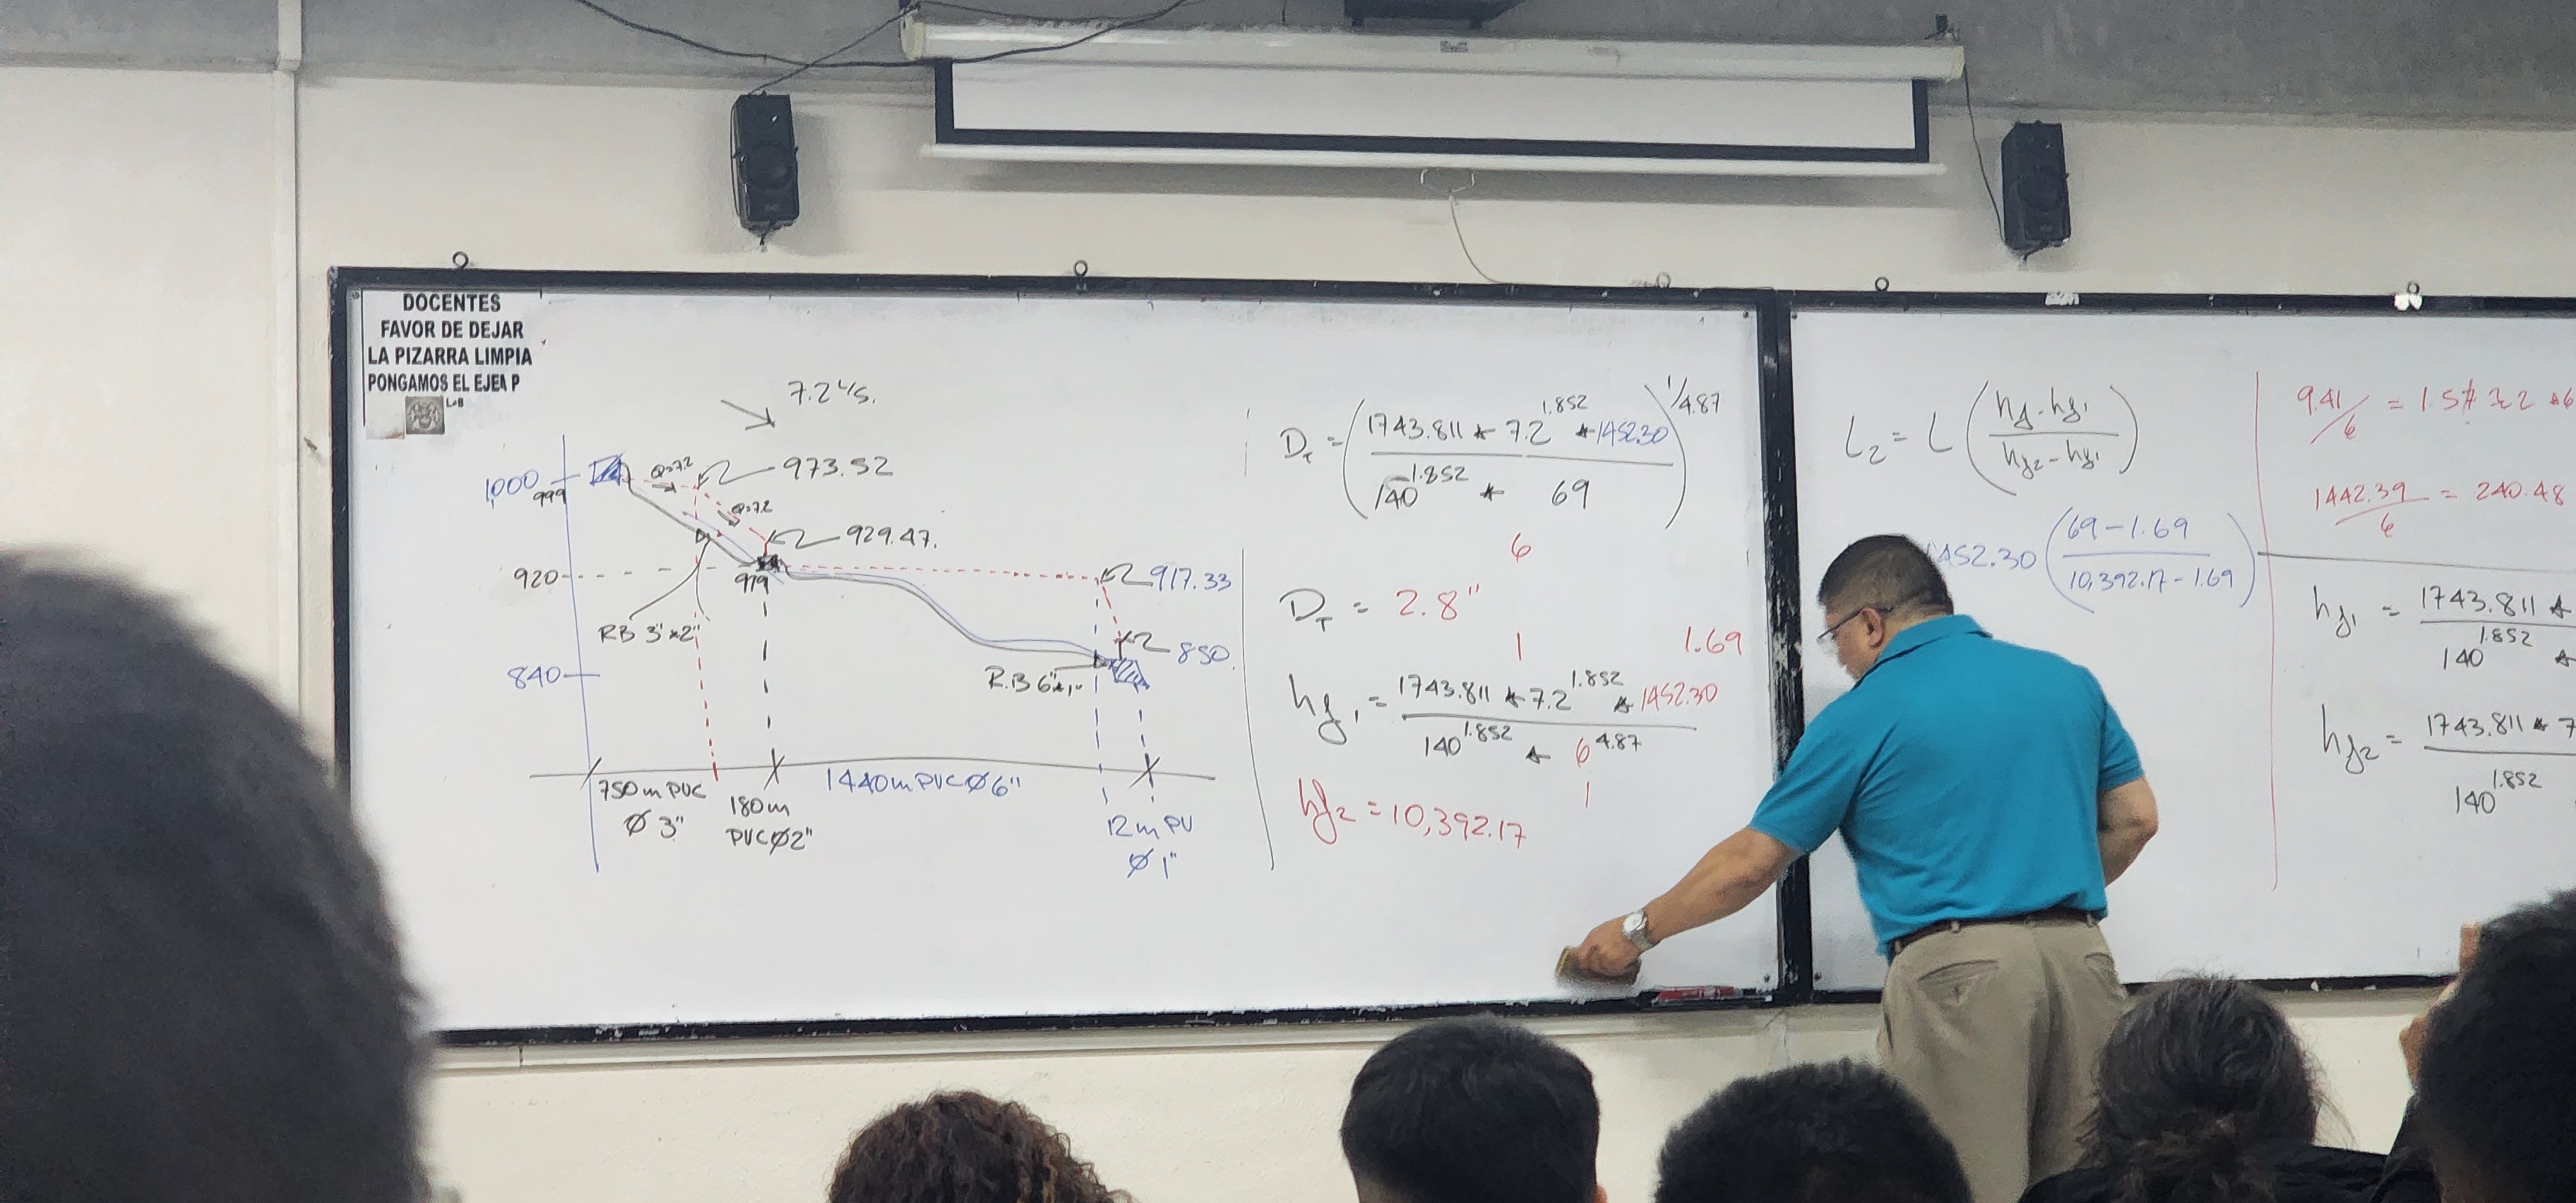 DOCENTES
FAVOR DE DEJAR
LA PIZARRA LIMPIA
PONGAMOS EL EJEM P
L&B
7.2 L/s.
1000
999
Q=7.2
973.52
Q=7.2
929.47.
920
919
917.33
RB 3"x2"
840
R.B 6"x1"
850.
750m PVC
Ø 3"
180m
PVC Ø2"
1440m PVC Ø6"
12m PV
Ø 1"
D_T = (1743.811 * 7.2^1.852 * 1452.30 / 140^1.852 * 69)^1/4.87
6
D_T = 2.8"
1
1.69
hf1 = 1743.811 * 7.2^1.852 * 1452.30 / 140^1.852 * 6^4.87
1
hf2 = 10,392.17
L2 = L (hf - hf1 / hf2 - hf1)
1452.30 (69 - 1.69 / 10,392.17 - 1.69)
9.41/6 = 1.5
1442.39/6 = 240.48
hf1 = 1743.811 * / 140^1.852 *
hf2 = 1743.811 * 7 / 140^1.852